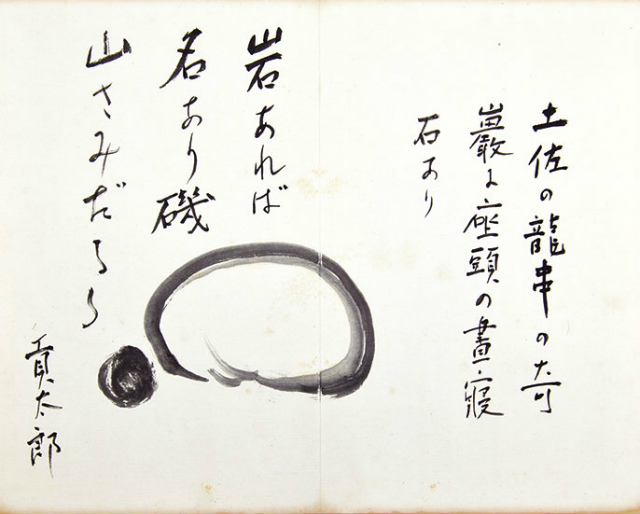 土佐の龍串の奇
巖に座頭の晝寢
石あり
岩あれば
名あり磯
山さみだるゝ
貢太郎